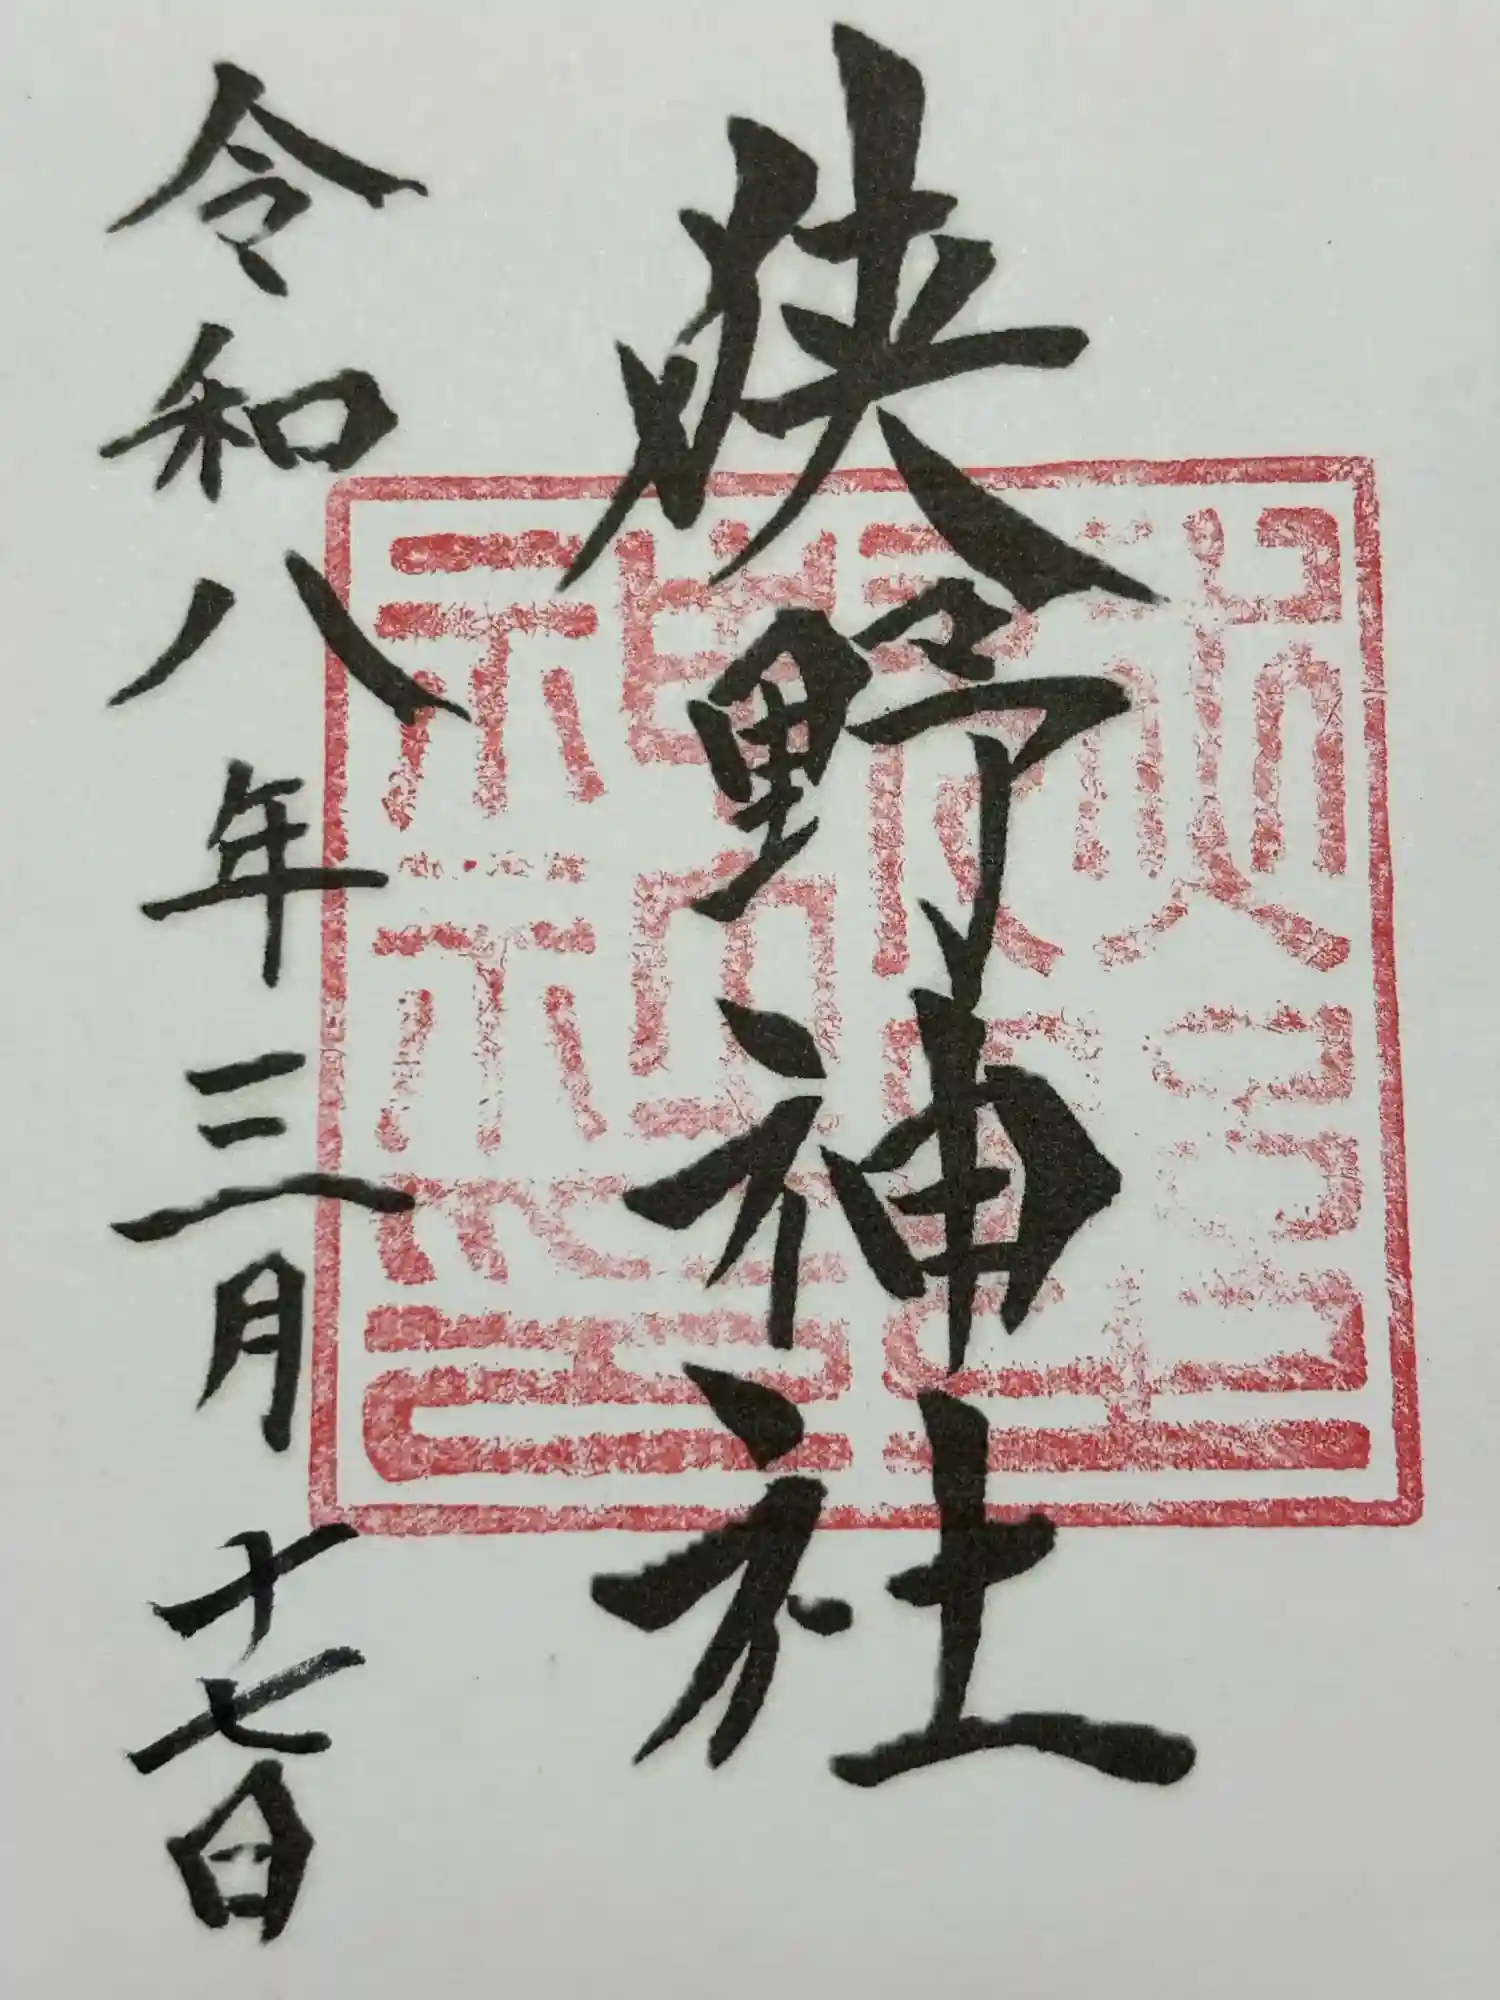 狭野神社
令和八年三月十七日